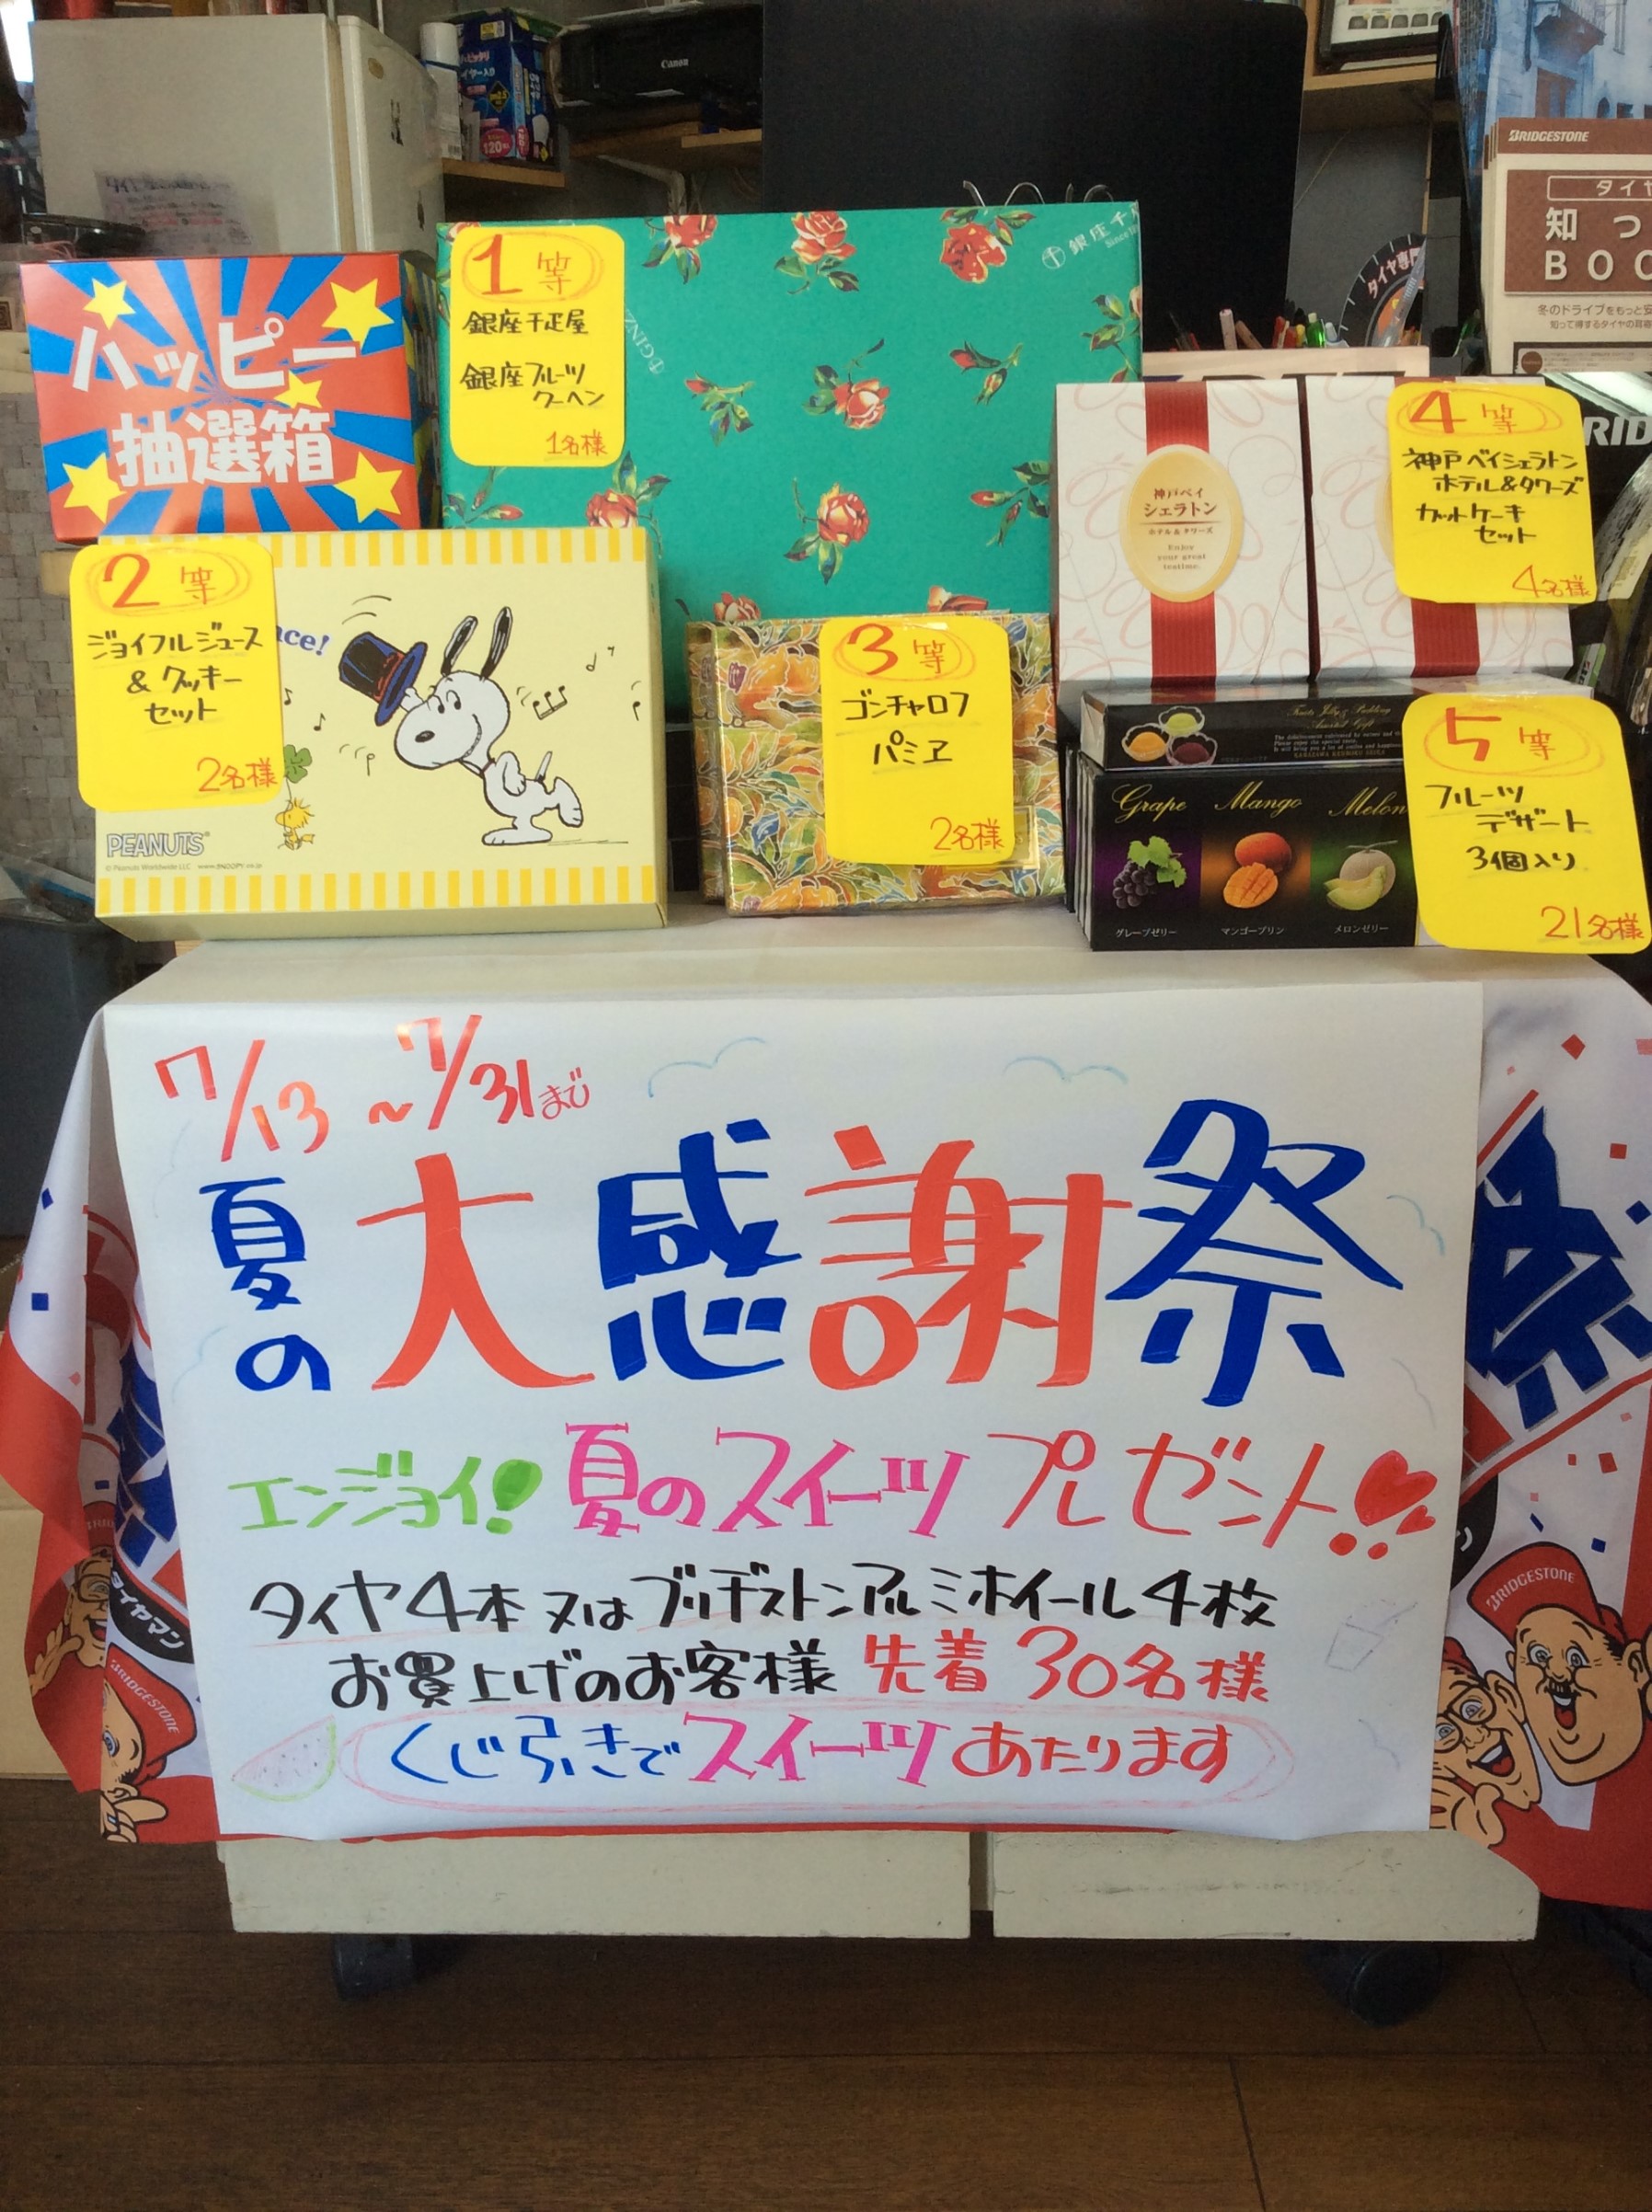 Canon
120枚
BRIDGESTONE
タイヤ
知っ
BOO
冬のドライブをもっと安
知って得するタイヤの耳寄
タイヤ専門
RID
ハッピー
抽選箱
1等
銀座千疋屋
銀座フルーツ
クーヘン
1名様
銀座千
Since 18
2等
ジョイフルジュース
&クッキー
セット
2名様
nce!
PEANUTS
© Peanuts Worldwide LLC www.SNOOPY.co.jp
3等
ゴンチャロフ
パミエ
2名様
神戸ベイ
シェラトン
ホテル&タワーズ
Enjoy
your great
teatime.
4等
神戸ベイシェラトン
ホテル&タワーズ
カットケーキ
セット
4名様
Fruits Jelly & Pudding
Assorted Gift
Grape Mango Melon
グレープゼリー マンゴープリン メロンゼリー
5等
フルーツ
デザート
3個入り
21名様
7/13 ~7/31まで
夏の大感謝祭
エンジョイ!夏のスイーツプレゼント!!
タイヤ4本又はブリヂストンアルミホイール4枚
お買上げのお客様先着30名様
くじ引きでスイーツあたります
祭
タイヤマン
BRIDGESTONE
BRIDGESTONE